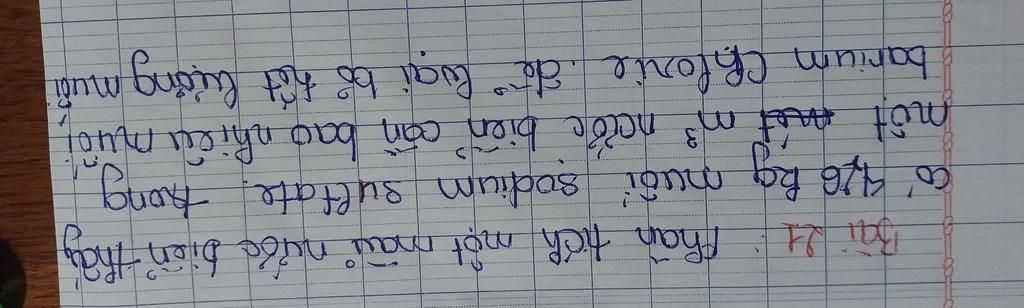 Bài 21: Phân tích một mẫu nước biển thấy
có 4,26 kg muối sodium sulfate. trong
một m³ nước biển cần bao nhiêu muối
barium Chlorie. để loại bỏ hết lượng muối